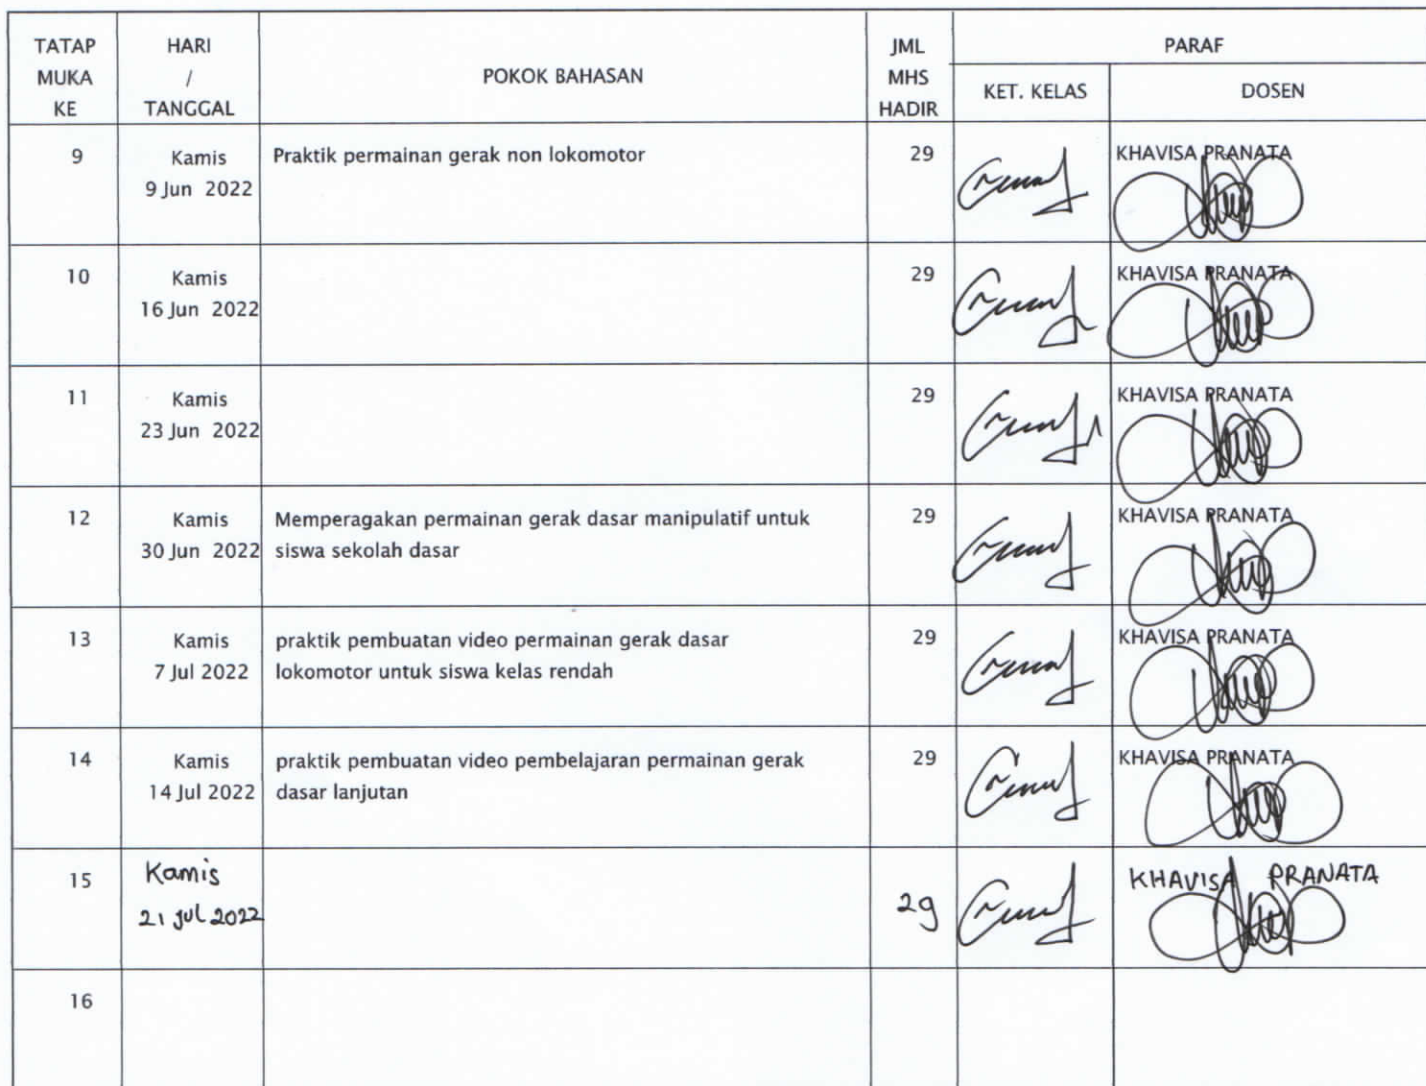 TATAP MUKA KE
HARI / TANGGAL
POKOK BAHASAN
JML MHS HADIR
PARAF
KET. KELAS
DOSEN
9
Kamis
9 Jun 2022
Praktik permainan gerak non lokomotor
29
KHAVISA PRANATA
10
Kamis
16 Jun 2022
29
KHAVISA PRANATA
11
Kamis
23 Jun 2022
29
KHAVISA PRANATA
12
Kamis
30 Jun 2022
Memperagakan permainan gerak dasar manipulatif untuk
siswa sekolah dasar
29
KHAVISA PRANATA
13
Kamis
7 Jul 2022
praktik pembuatan video permainan gerak dasar
lokomotor untuk siswa kelas rendah
29
KHAVISA PRANATA
14
Kamis
14 Jul 2022
praktik pembuatan video pembelajaran permainan gerak
dasar lanjutan
29
KHAVISA PRANATA
15
Kamis
21 Jul 2022
29
KHAVISA PRANATA
16